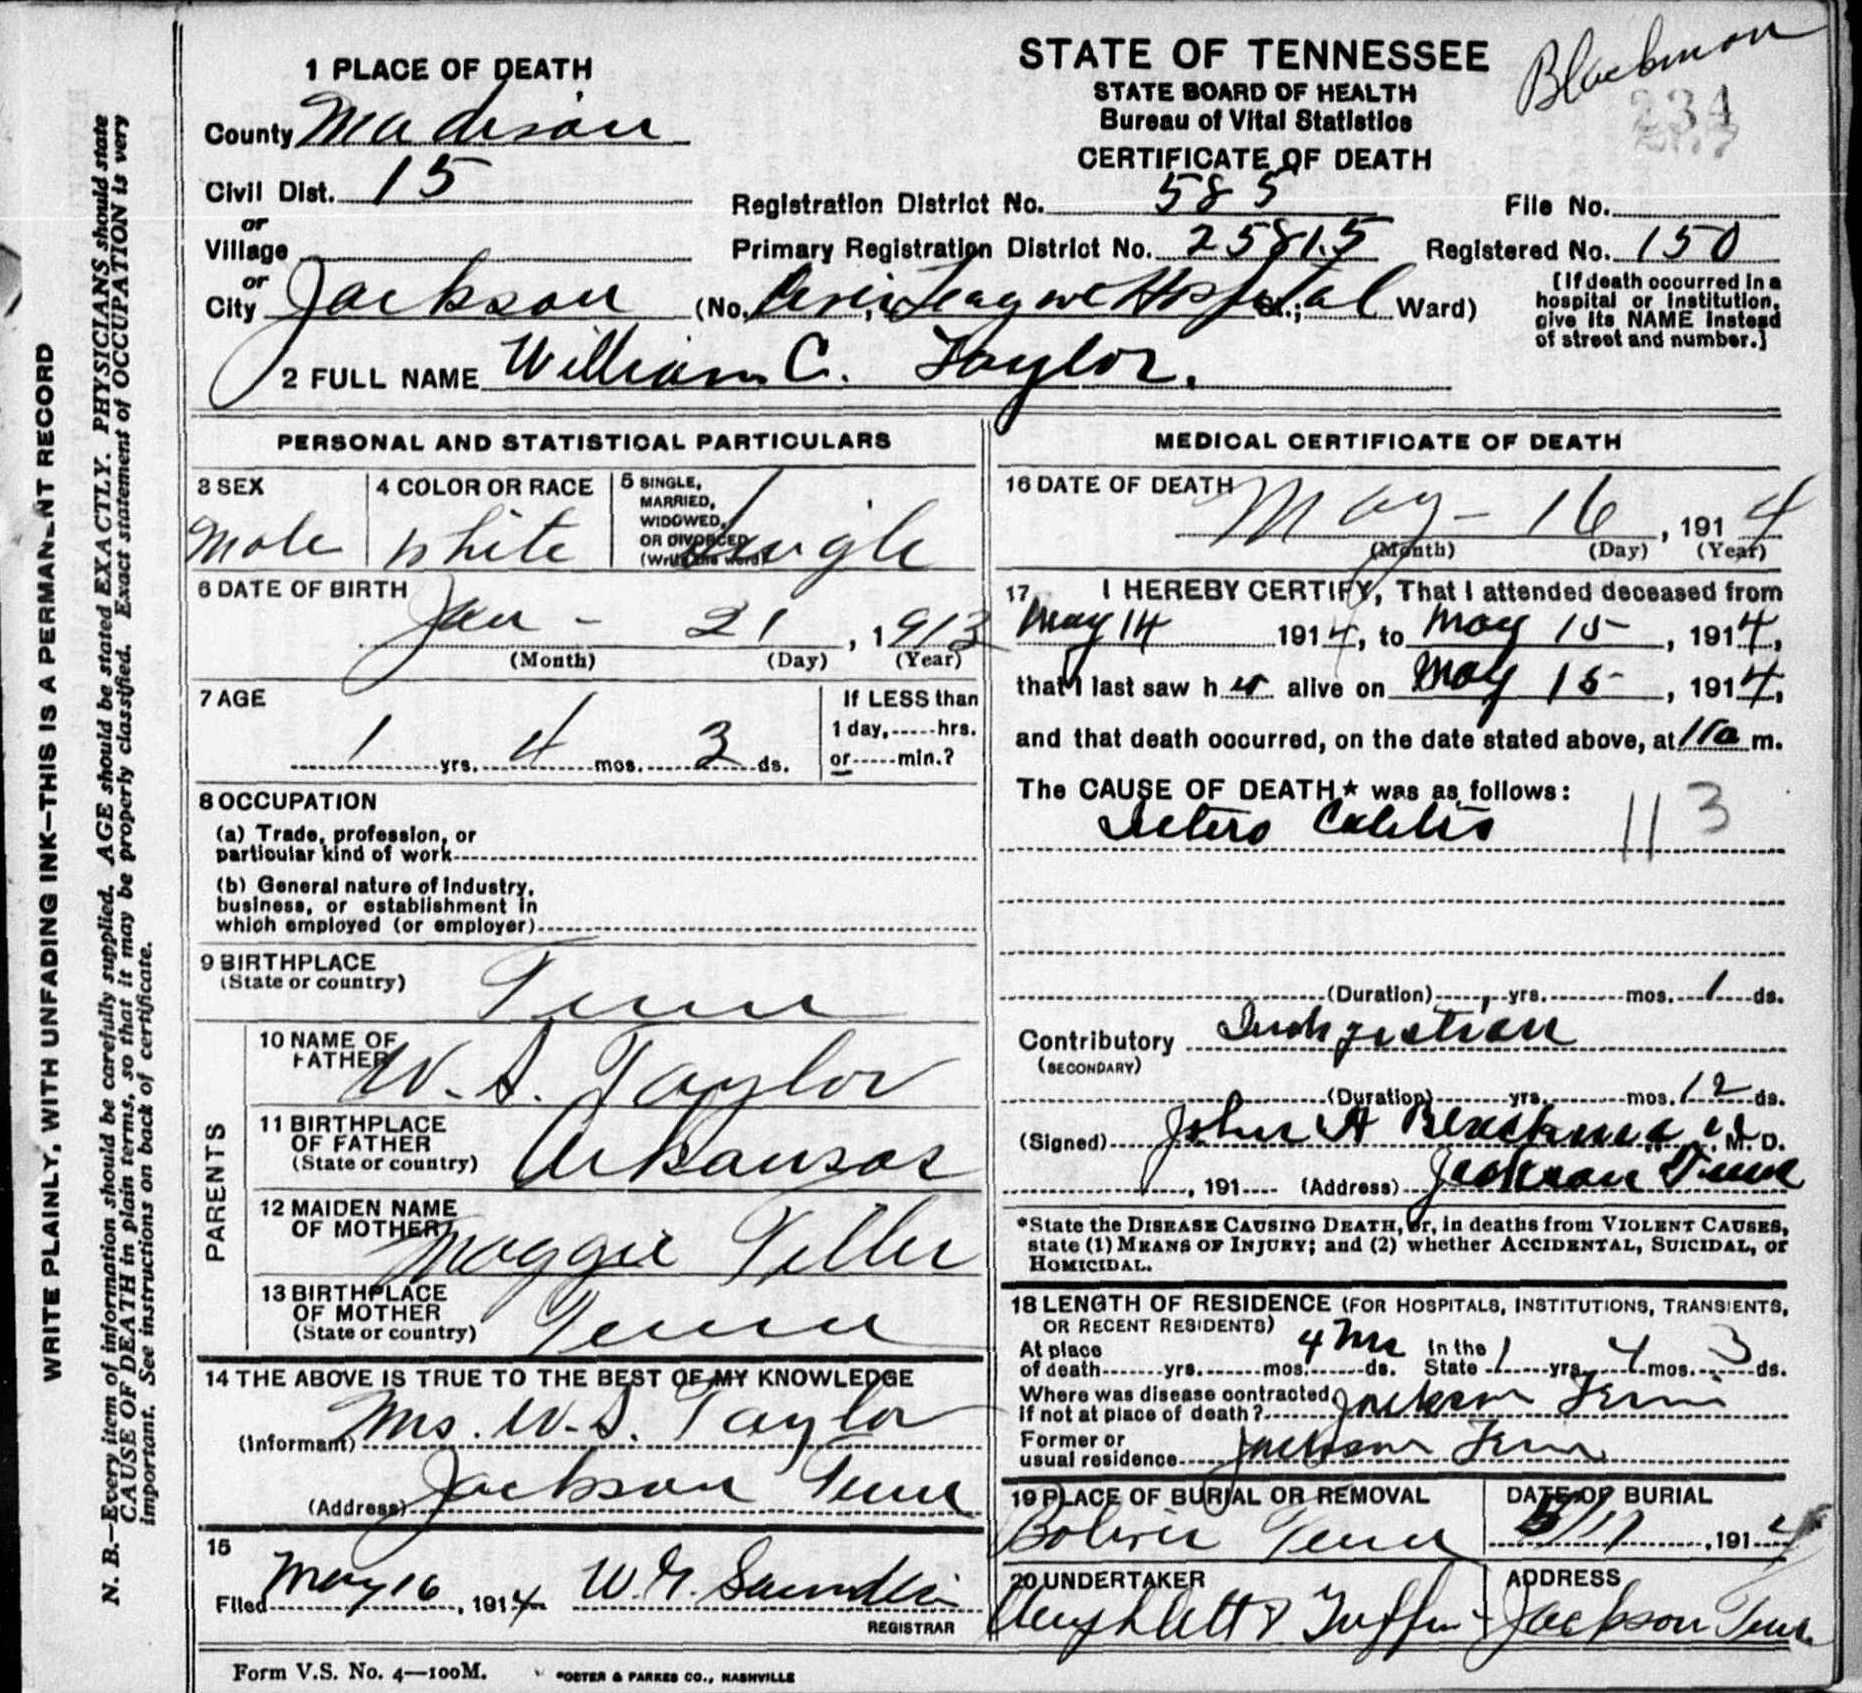 WRITE PLAINLY, WITH UNFADING INK—THIS IS A PERMANENT RECORD
N. B.—Every item of information should be carefully supplied. AGE should be stated EXACTLY. PHYSICIANS should state
CAUSE OF DEATH in plain terms, so that it may be properly classified. Exact statement of OCCUPATION is very
important. See instructions on back of certificate.
1 PLACE OF DEATH
County Madison
Civil Dist. 15
or
Village
or
City Jackson (No. Civic League Hospital St.; Ward)
STATE OF TENNESSEE
STATE BOARD OF HEALTH
Bureau of Vital Statistics
CERTIFICATE OF DEATH
Blackmon
234
Registration District No. 585 File No.
Primary Registration District No. 25815 Registered No. 150
[If death occurred in a
hospital or institution,
give its NAME instead
of street and number.]
2 FULL NAME William C. Taylor.
PERSONAL AND STATISTICAL PARTICULARS
3 SEX
Male
4 COLOR OR RACE
White
5 SINGLE,
MARRIED,
WIDOWED,
OR DIVORCED
(Write the word)
Single
6 DATE OF BIRTH
Jan - 21, 1913
(Month) (Day) (Year)
7 AGE
1 yrs. 4 mos. 3 ds.
If LESS than
1 day, hrs.
or min.?
8 OCCUPATION
(a) Trade, profession, or
particular kind of work
(b) General nature of industry,
business, or establishment in
which employed (or employer)
9 BIRTHPLACE
(State or country)
Tenn
PARENTS
10 NAME OF
FATHER
W. S. Taylor
11 BIRTHPLACE
OF FATHER
(State or country)
Arkansas
12 MAIDEN NAME
OF MOTHER
Maggie Teller
13 BIRTHPLACE
OF MOTHER
(State or country)
Tenn
14 THE ABOVE IS TRUE TO THE BEST OF MY KNOWLEDGE
(Informant) Mrs. W. S. Taylor
(Address) Jackson Tenn
15
Filed May 16, 1914 W. G. Saunders
REGISTRAR
MEDICAL CERTIFICATE OF DEATH
16 DATE OF DEATH
May - 16, 1914
(Month) (Day) (Year)
17 I HEREBY CERTIFY, That I attended deceased from
May 14 1914, to May 15, 1914,
that I last saw h alive on May 15, 1914,
and that death occurred, on the date stated above, at 11 a m.
The CAUSE OF DEATH* was as follows:
113
(Duration) yrs. mos. 1 ds.
Contributory
(SECONDARY)
(Duration) yrs. mos. 12 ds.
(Signed) John A M. D.
, 191 (Address) Jackson Tenn
*State the DISEASE CAUSING DEATH, or, in deaths from VIOLENT CAUSES,
state (1) MEANS OF INJURY; and (2) whether ACCIDENTAL, SUICIDAL, or
HOMICIDAL.
18 LENGTH OF RESIDENCE (FOR HOSPITALS, INSTITUTIONS, TRANSIENTS,
OR RECENT RESIDENTS)
At place
of death yrs. mos. 4 ds.
In the
State 1 yrs. 4 mos. 3 ds.
Where was disease contracted,
if not at place of death? Jackson Tenn
Former or
usual residence Jackson Tenn
19 PLACE OF BURIAL OR REMOVAL
Bolivar Tenn
DATE OF BURIAL
5/17, 1914
20 UNDERTAKER
& Griffin
ADDRESS
Jackson Tenn.
Form V.S. No. 4—100M.
FOSTER & PARKES CO., NASHVILLE